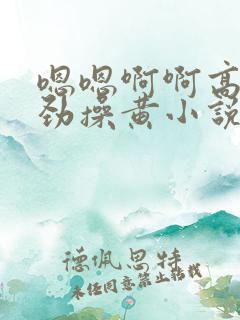 嗯嗯啊啊高
劲操黄小说
德佩思特
未经同意禁止转载